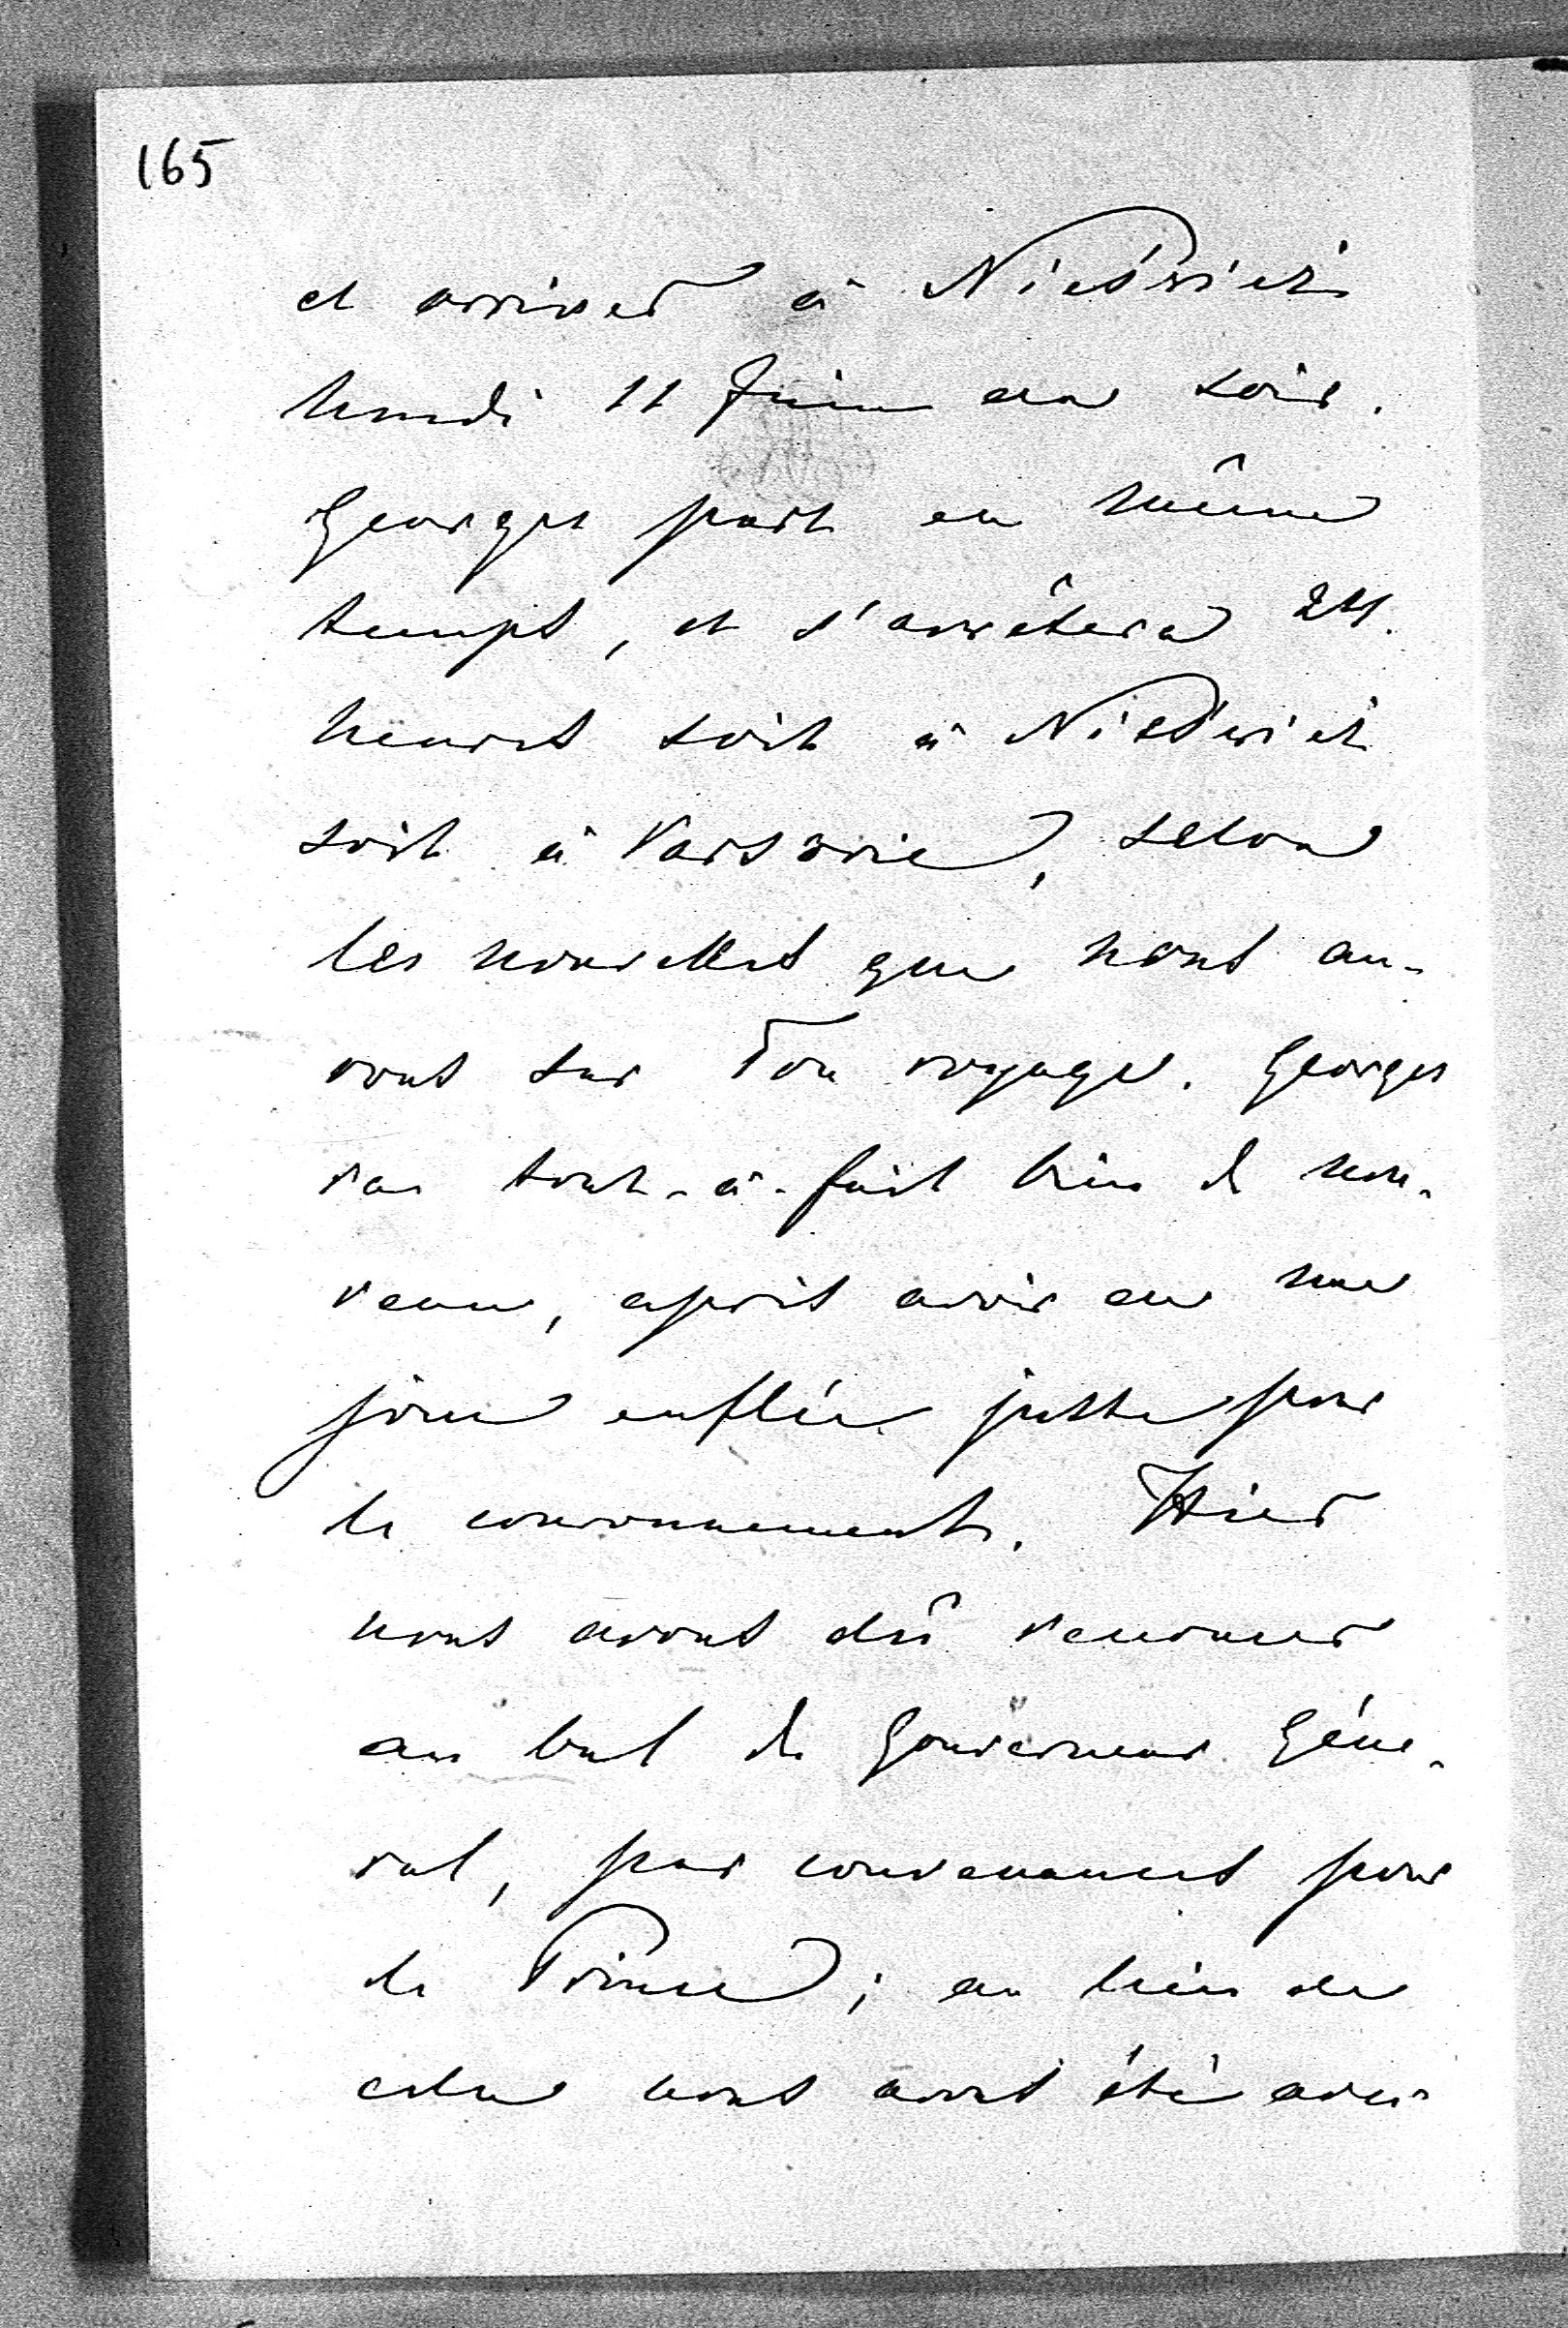 165
et arriver à Nieświeź
lundi 11 Juin au soir.
Georges part en même
temps, et s'arrêtera 24.
heures soit à Nieświeź
soit à Varsovie, selon
les nouvelles que nous au-
rons sur Ton voyage. Georges
va tout-à-fait bien de nou-
veau, après avoir eu une
joue enflée juste pour
le couronnement. Hier
nous avons dû renoncer
au bal du Gouverneur Géné-
ral, par convenances pour
le Prince; au lieu de
cela nous avons été avec